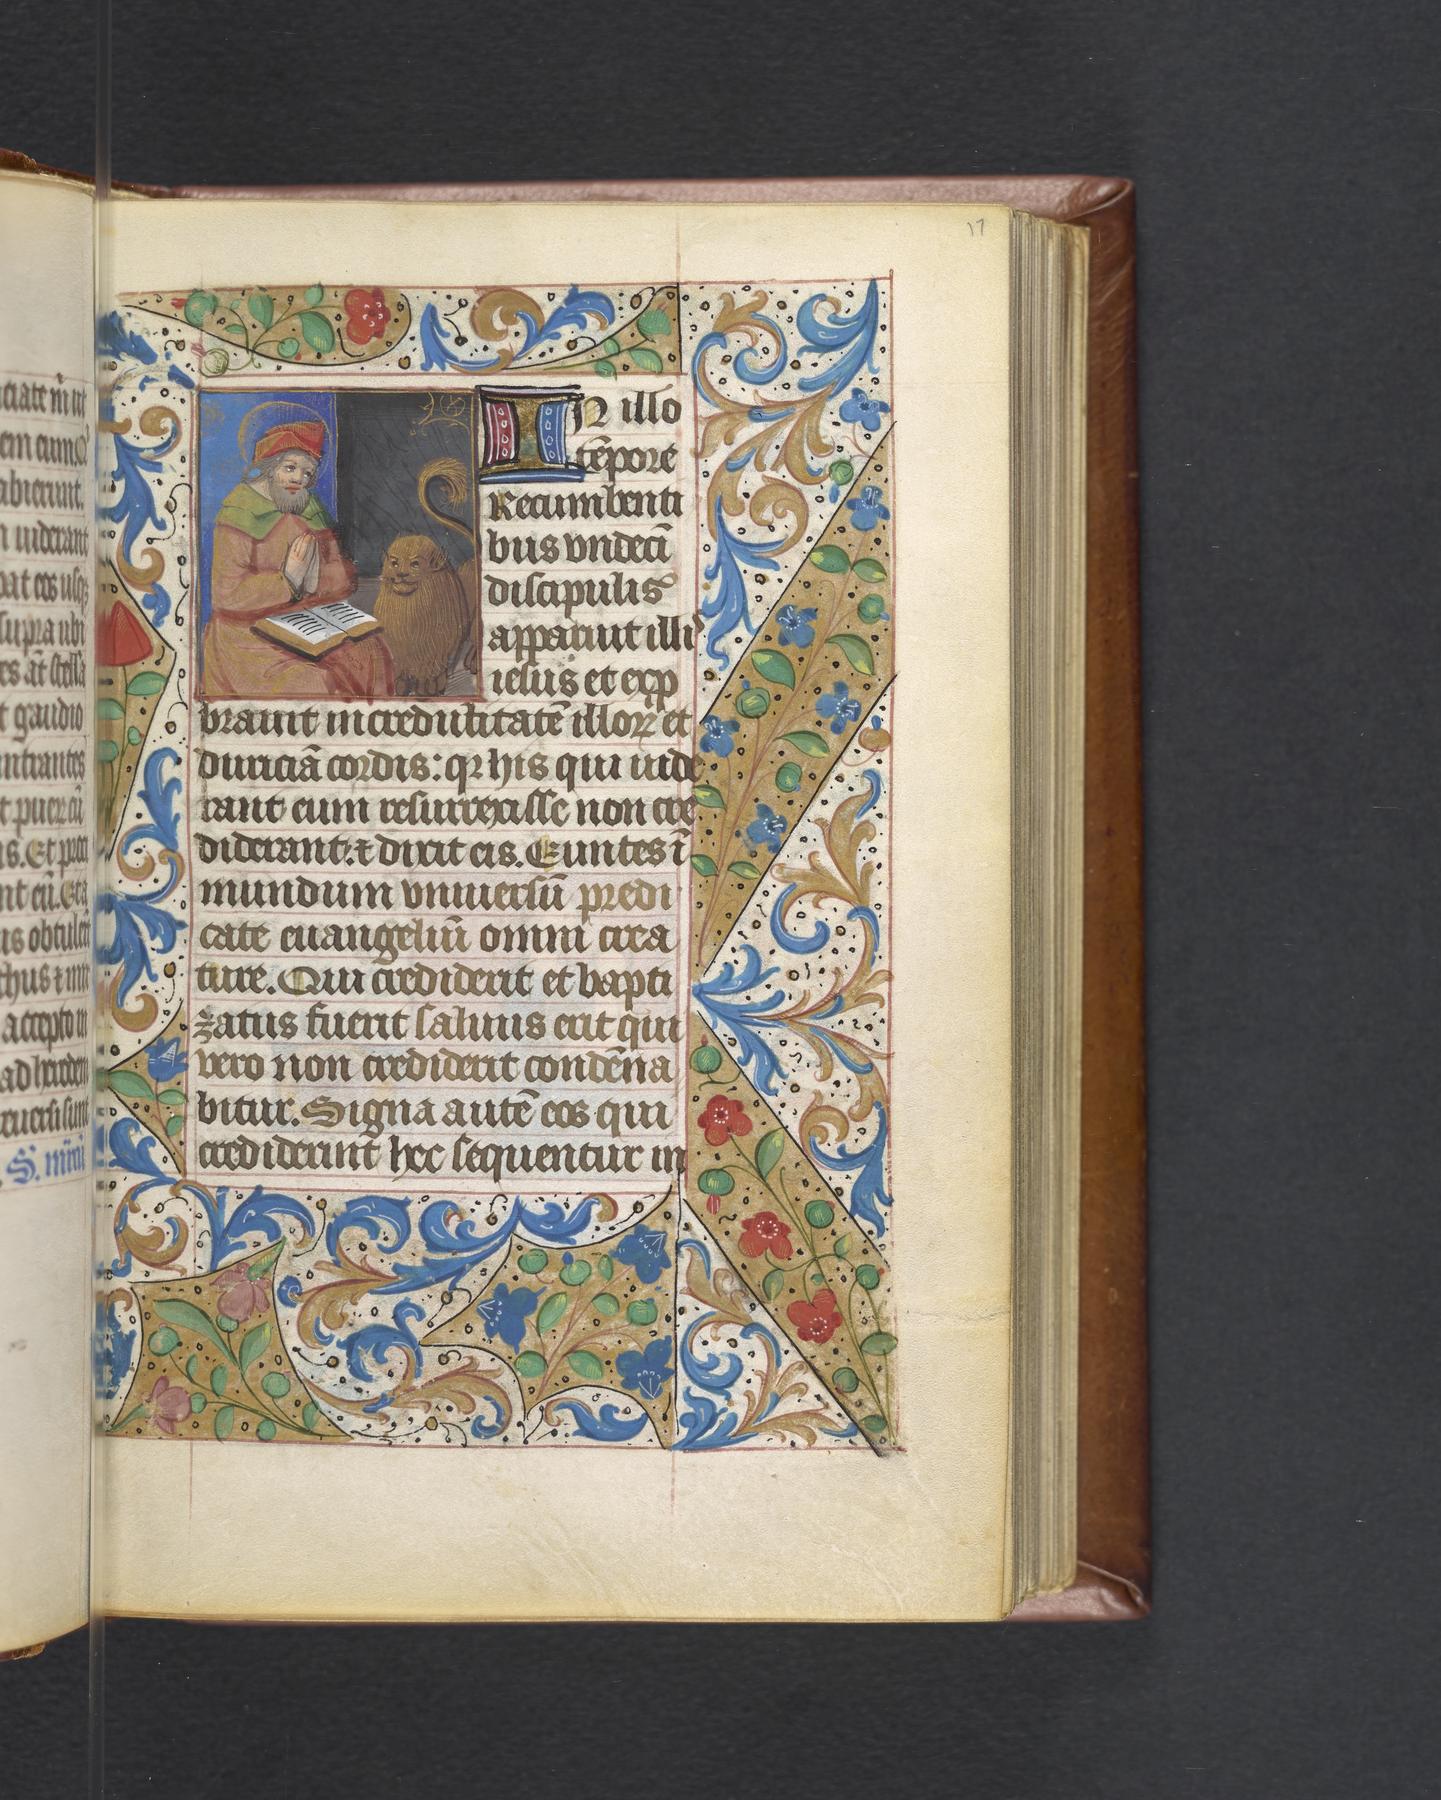 17
ciate
em eum
abierunt.
uiderant
bat eos usq3
supra ubi
stella
gaudio
intrantes
puerū
is. Et
nt eū.
is obtulerūt
thus τ
accepto in
ad herodem
reuersi sunt
S.
In illo
tēpore
Recumbenti
bus vndecī
discipulis
apparuit illis
iesus et exp
brauit incredulitatē illoꝝ et
duriciā cordis: qꝛ his qui uide
rant eum resurrexisse non cre
diderant: τ dixit eis. Euntes ī
mundum vniuersū predi
cate euangeliū omni crea
ture. Qui crediderit et bapti
zatus fuerit saluus erit qui
vero non crediderit condēna
bitur. Signa autē eos qui
crediderint hec sequentur in